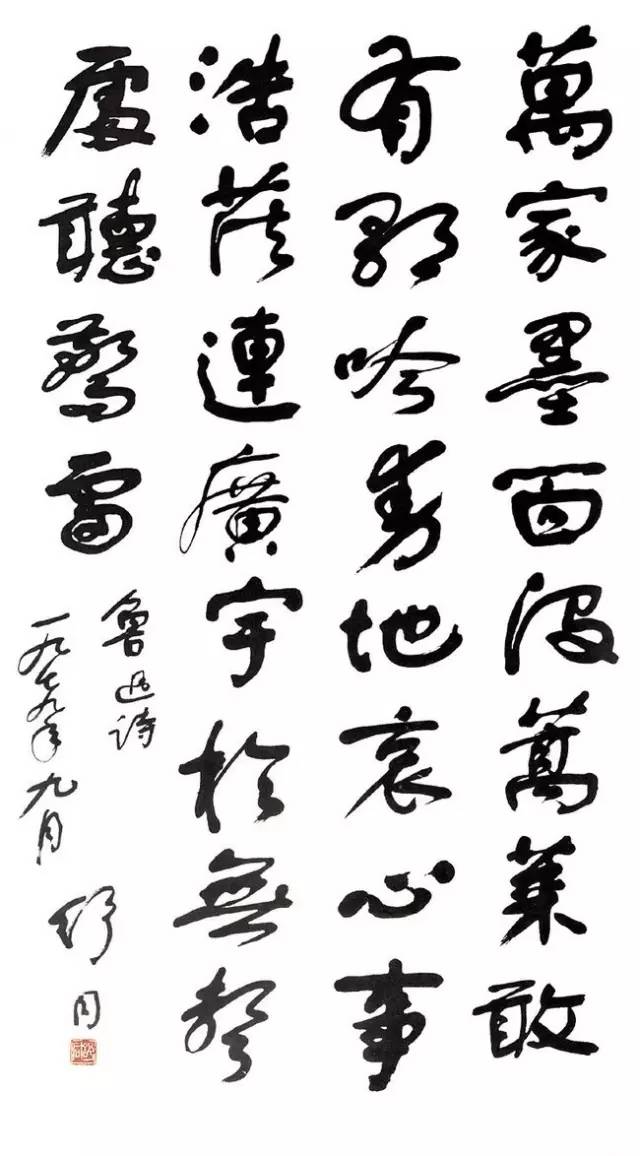 萬家墨面没蒿莱敢
有歌吟動地哀心事
浩茫連廣宇於無聲
處聽驚雷
魯迅诗
一九七九年九月
舒同